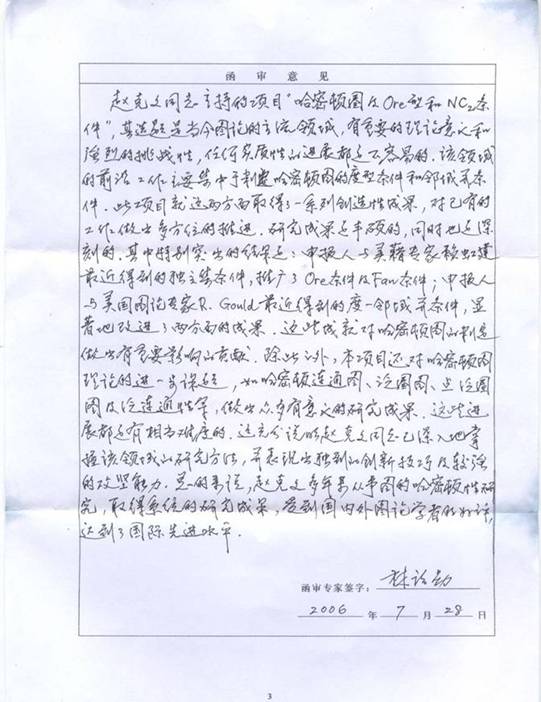 函审意见
赵克文同志主持的项目“哈密顿图及Ore型和NC2条
件”，其选题是当今图论的主流领域，有重要的理论意义和
强烈的挑战性，任何实质性的进展都是不容易的．该领域
的前沿工作主要集中于判定哈密顿图的度型条件和邻域并条
件．此项目就这两方面取得了一系列创造性成果，对已有的
工作做出多方位的推进．研究成果是丰硕的，同时也是深
刻的．其中特别突出的结果是：申报人与美籍专家赖虹建
最近得到的独立集条件，推广了Ore条件及Fan条件；申报人
与美国图论专家R. Gould最近得到的度－邻域并条件，显
著地改进了两方面的成果．这些成就对哈密顿图的判定
做出有重要影响的贡献．除此之外，本项目还对哈密顿图
理论的进一步课题，如哈密顿连通图、泛圈图、点泛圈
图及泛连通性等，做出众多有意义的研究成果．这些进
展都是有相当难度的．这充分说明赵克文同志已深入地掌
握该领域的研究方法，并表现出独到的创新技巧及较强
的攻坚能力．总的来说，赵克文多年来从事图的哈密顿性研
究，取得系统的研究成果，受到国内外图论学者的好评，
达到了国际先进水平．
函审专家签字：林诒勋
2006 年 7 月 28 日
3